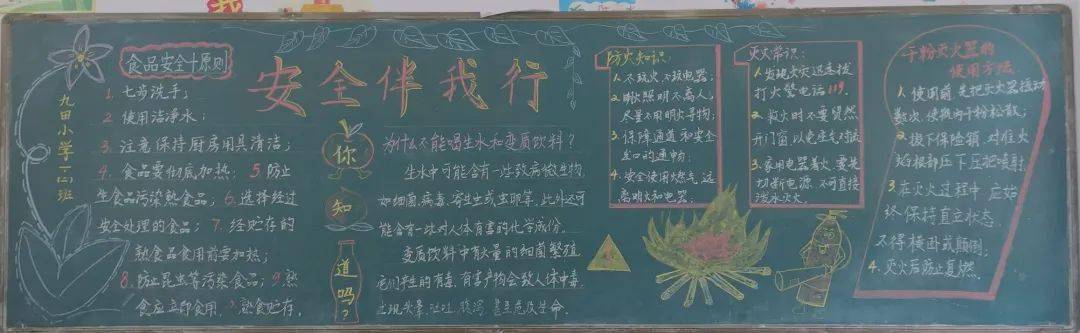 九田小学一(2)班
食品安全十原则
1. 七步洗手；
2 使用洁净水；
3. 注意保持厨房用具清洁；
4. 食品要彻底加热；5 防止
生食品污染熟食品；6.选择经过
安全处理的食品；7. 经贮存的
熟食品食用前要加热；
8. 防止昆虫等污染食品；9.熟
食应立即食用，熟食贮存，
安全伴我行
你知道吗？
为什么不能喝生水和变质饮料？
生水中可能含有一些致病微生物
如细菌、病毒、寄生虫或虫卵等，此外还可
能含有一些对人体有害的化学成份。
变质饮料中有大量的细菌繁殖
它们产生的有毒、有害产物会致人体中毒，
出现头晕、呕吐、腹泻 甚至危及生命。
防火知识：
1. 不玩火 不玩电器；
2. 照明不离人，
尽量不用明火导物；
3. 保障通道和安全
出口的通畅；
4. 安全使用燃气，远
离明火和电器；
灭火常识：
1. 发现火灾迅速拨
打火警电话119.
2. 救火时不要贸然
开门窗，以免空气对流
3. 家用电器着火，要先
切断电源，不可直接
泼水灭火。
干粉灭火器的
使用方法
1. 使用前，先把灭火器摇动
数次，使瓶内干粉松散；
2 拔下保险销，对准火
焰根部压下压把喷射；
3. 在灭火过程中，应始
终保持直立状态，
不得横卧或颠倒；
4. 灭火后防止复燃。